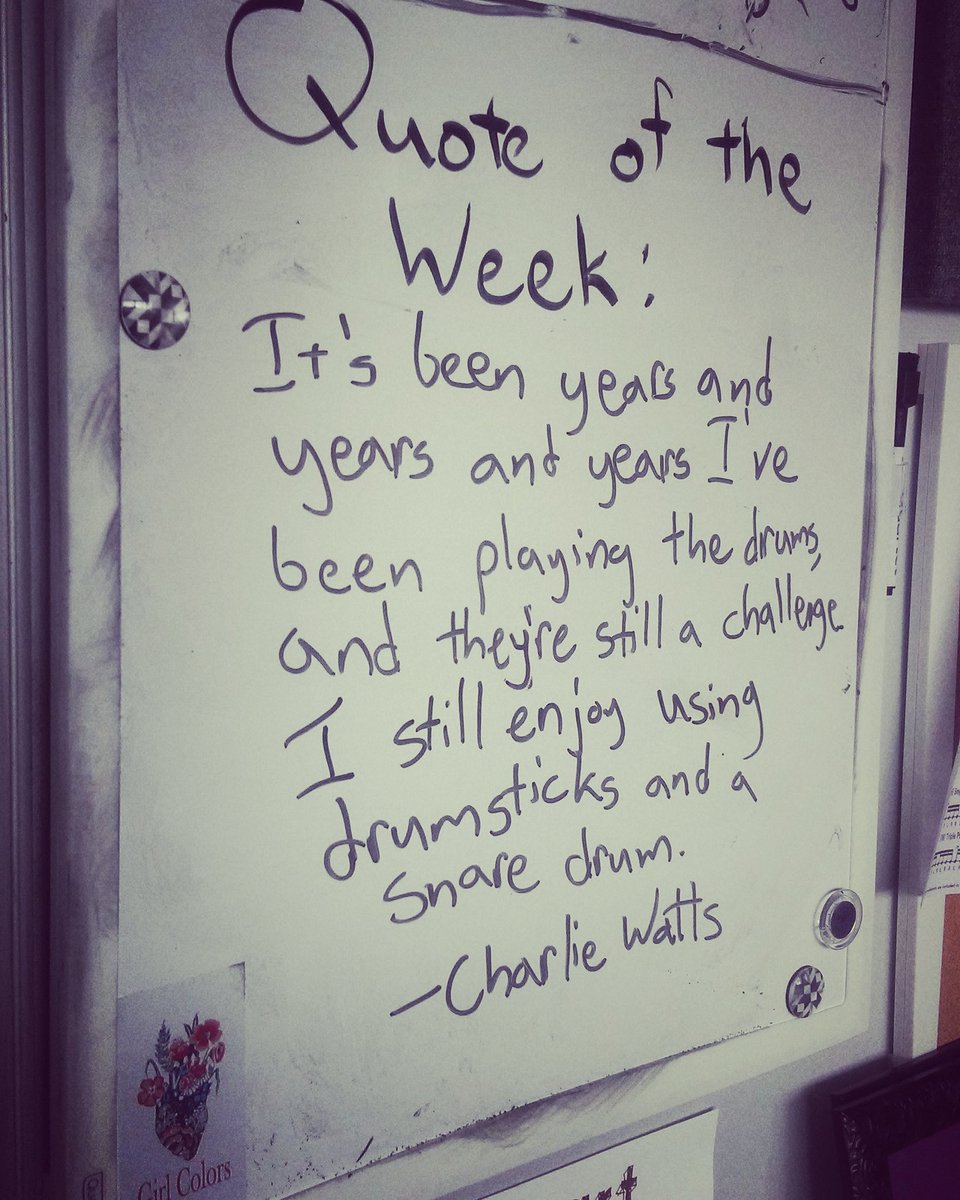 Quote of the
Week:
It's been years and
years and years I've
been playing the drums,
and they're still a challenge
I still enjoy using
drumsticks and a
snare drum.
—Charlie Watts
Girl Colors